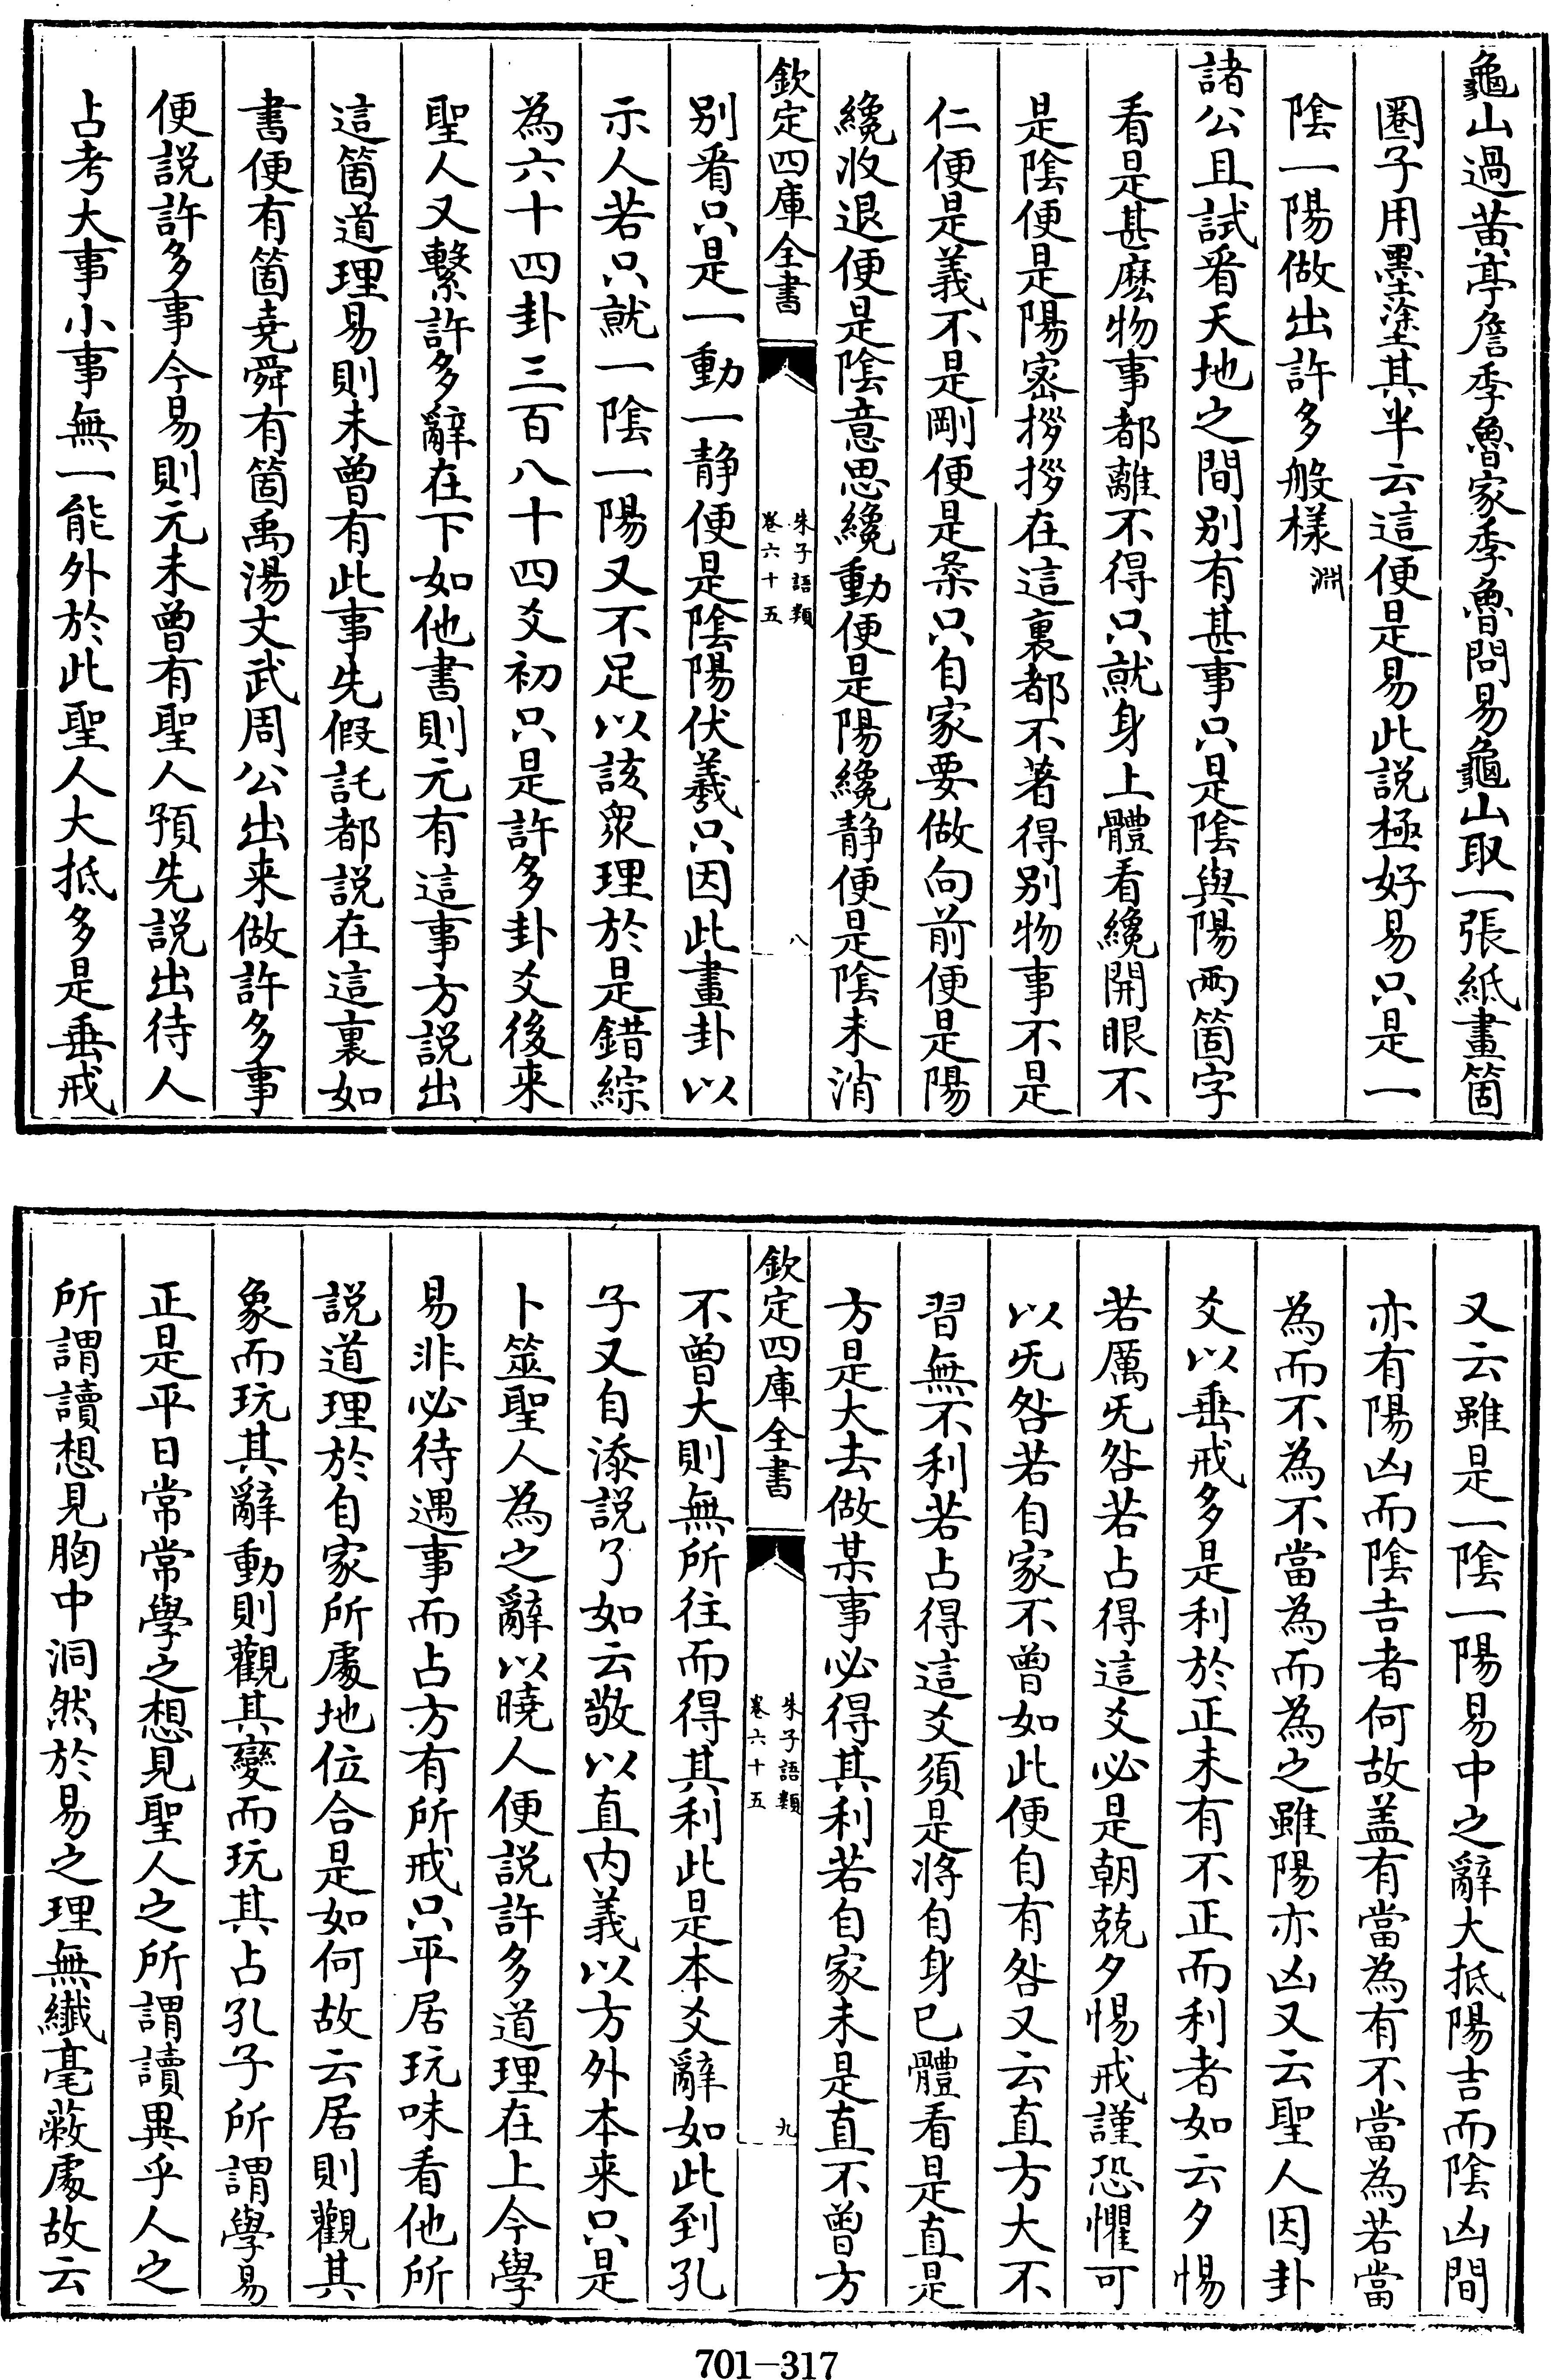 龜山過黃亭詹季魯家季魯問易龜山取一張紙畫箇
圈子用墨塗其半云這便是易此說極好易只是一
陰一陽做出許多般樣 淵
諸公且試看天地之間别有甚事只是陰與陽兩箇字
看是甚麽物事都離不得只就身上體看纔開眼不
是陰便是陽宻拶拶在這裏都不著得别物事不是
仁便是義不是剛便是柔只自家要做向前便是陽
纔收退便是陰意思纔動便是陽纔静便是陰未消
欽定四庫全書
朱子語類
卷六十五
八
别看只是一動一静便是陰陽伏羲只因此畫卦以
示人若只就一陰一陽又不足以該衆理於是錯綜
為六十四卦三百八十四爻初只是許多卦爻後来
聖人又繫許多辭在下如他書則元有這事方説出
這箇道理易則未曽有此事先假託都説在這裏如
書便有箇堯舜有箇禹湯文武周公出来做許多事
便説許多事今易則元未曽有聖人預先説出待人
占考大事小事無一能外於此聖人大抵多是垂戒
又云雖是一陰一陽易中之辭大抵陽吉而陰凶間
亦有陽凶而陰吉者何故盖有當為有不當為若當
為而不為不當為而為之雖陽亦凶又云聖人因卦
爻以垂戒多是利於正未有不正而利者如云夕惕
若厲无咎若占得這爻必是朝兢夕惕戒謹恐懼可
以无咎若自家不曽如此便自有咎又云直方大不
習無不利若占得這爻須是将自身已體看是直是
方是大去做某事必得其利若自家未是直不曽方
欽定四庫全書
朱子語類
卷六十五
九
不曽大則無所往而得其利此是本爻辭如此到孔
子又自添説了如云敬以直内義以方外本来只是
卜筮聖人為之辭以曉人便説許多道理在上今學
易非必待遇事而占方有所戒只平居玩味看他所
説道理於自家所處地位合是如何故云居則觀其
象而玩其辭動則觀其變而玩其占孔子所謂學易
正是平日常常學之想見聖人之所謂讀異乎人之
所謂讀想見胸中洞然於易之理無纖毫蔽處故云
701-317